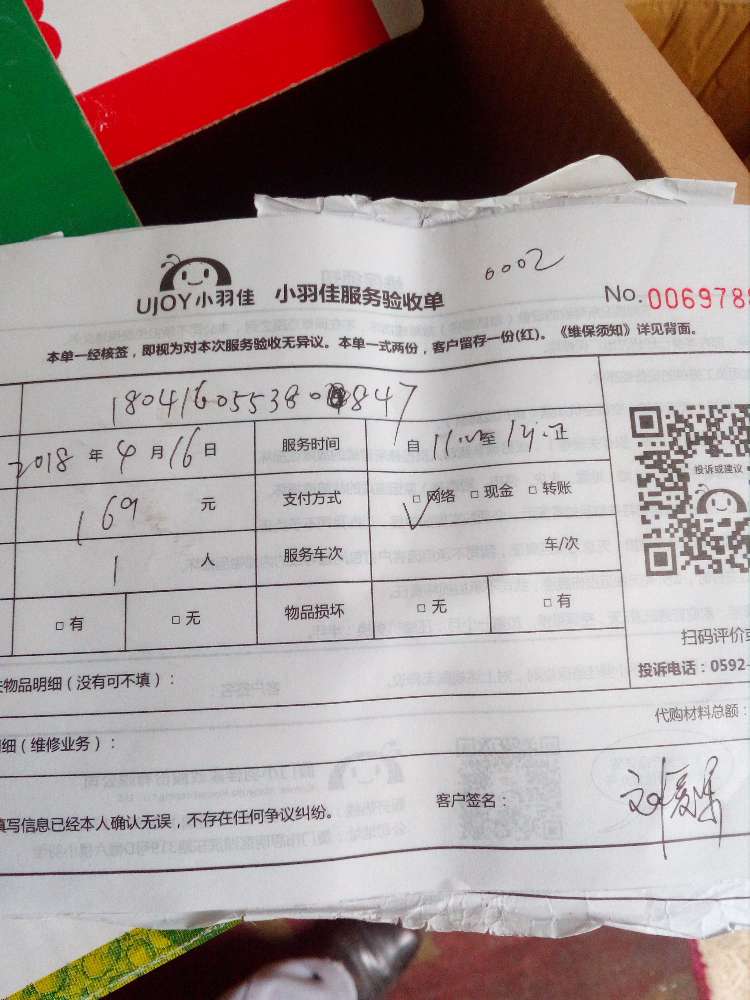 0002
UJOY小羽佳 小羽佳服务验收单 No. 0069788
本单一经核签，即视为对本次服务验收无异议。本单一式两份，客户留存一份(红)。《维保须知》详见背面。
2018 年 4 月 16 日 服务时间 自 11:00 至 14:00 止
169 元 支付方式 □ 网络 □ 现金 □ 转账
1 人 服务车次 车/次
□ 有 □ 无 物品损坏 □ 无 □ 有
投诉或建议
扫码评价或
物品明细（没有可不填）： 投诉电话：0592-
代购材料总额：
细（维修业务）：
填写信息已经本人确认无误，不存在任何争议纠纷。 客户签名：